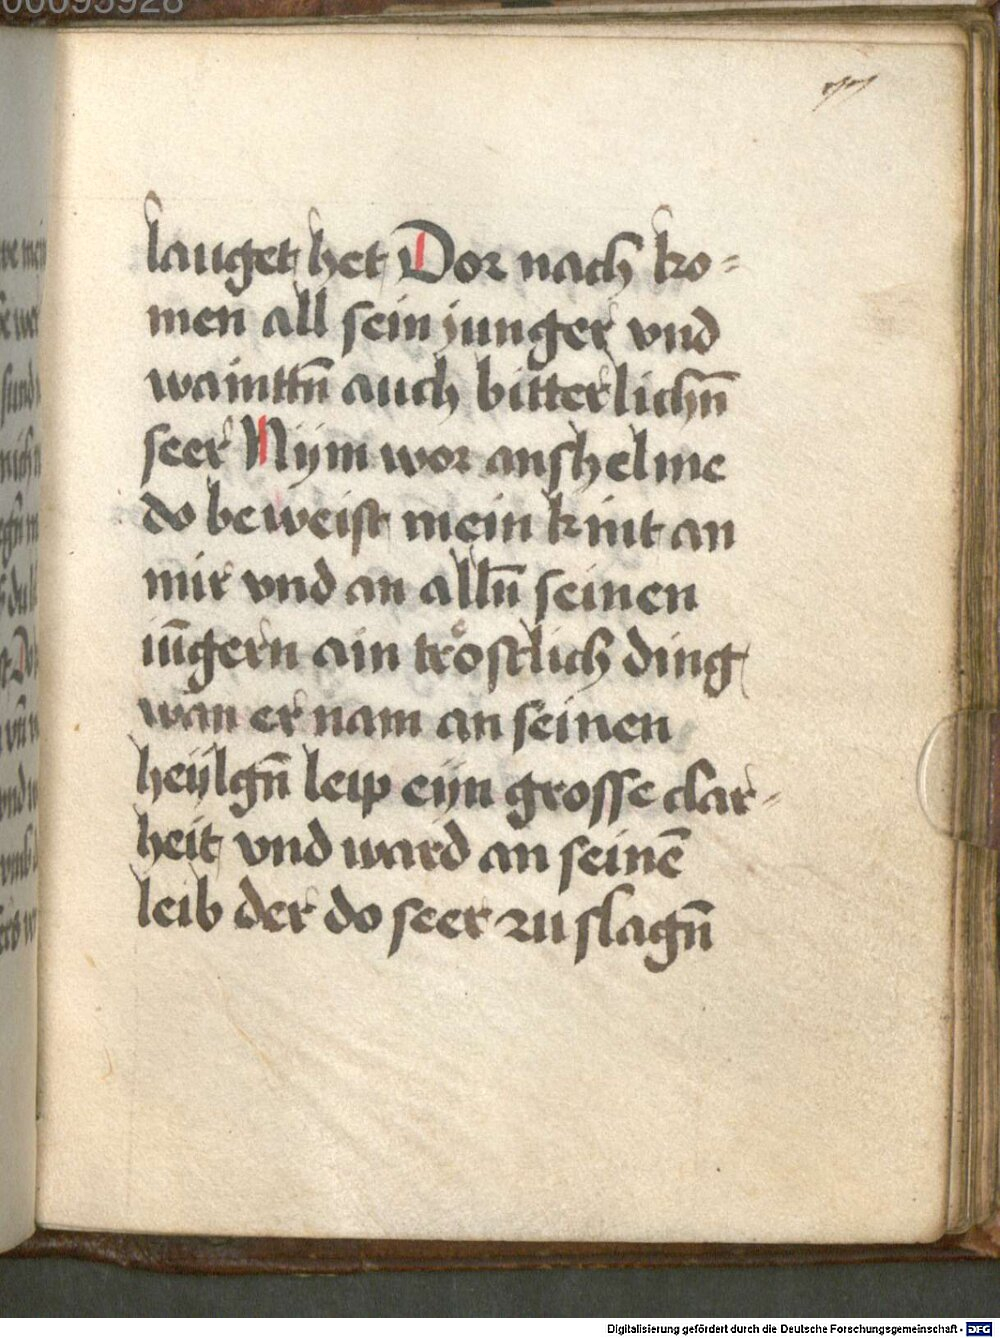 lauget het Dor nach ko=
men all sein junger vnd
wainttn̄ auch bitterlichn̄
seer Nym wor anshelme
do beweist mein kint an
mir vnd an alln̄ seinen
iūgern ain trostlich ding
wan er nam an seinen
heÿlgn̄ leip eyn grosse clar=
heit vnd ward an seinē
leib der do seer zu slagn̄
Digitalisierung gefördert durch die Deutsche Forschungsgemeinschaft - DFG